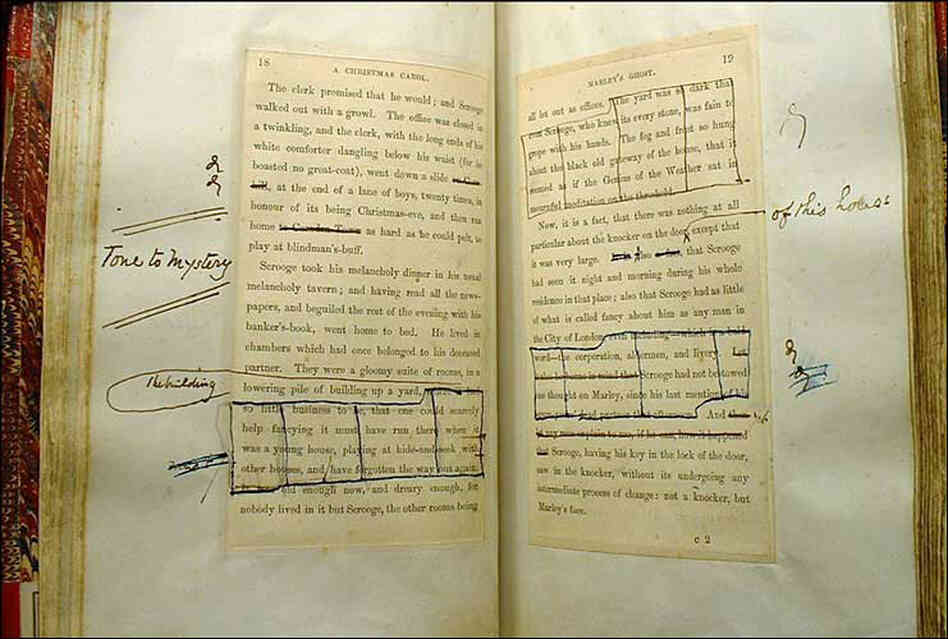 18
A CHRISTMAS CAROL.
The clerk promised that he would; and Scrooge
walked out with a growl. The office was closed in
a twinkling, and the clerk, with the long ends of his
white comforter dangling below his waist (for he
boasted no great-coat), went down a slide
at the end of a lane of boys, twenty times, in
honour of its being Christmas-eve, and then ran
home to Camden Town as hard as he could pelt, to
play at blindman's-buff.
Tone to Mystery
Scrooge took his melancholy dinner in his usual
melancholy tavern; and having read all the news-
papers, and beguiled the rest of the evening with his
banker's-book, went home to bed. He lived in
chambers which had once belonged to his deceased
partner. They were a gloomy suite of rooms, in a
The building
lowering pile of building up a yard,
so little business to be, that one could scarcely
help fancying it must have run there when it
was a young house, playing at hide-and-seek with
other houses, and have forgotten the way out again.
old enough now, and dreary enough, for
nobody lived in it but Scrooge, the other rooms being
MARLEY'S GHOST.
19
all let out as offices. The yard was so dark that
even Scrooge, who knew its every stone, was fain to
grope with his hands. The fog and frost so hung
about the black old gateway of the house, that it
seemed as if the Genius of the Weather sat in
mournful meditation on the threshold.
Now, it is a fact, that there was nothing at all
of this house
particular about the knocker on the door, except that
it was very large. also that Scrooge
had seen it night and morning during his whole
residence in that place; also that Scrooge had as little
of what is called fancy about him as any man in
the City of London, even including—which is a bold
word—the corporation, aldermen, and livery. Let
Scrooge had not bestowed
one thought on Marley, since his last mention of his
dead partner that afternoon. And
if he can, how it happened
that Scrooge, having his key in the lock of the door,
saw in the knocker, without its undergoing any
intermediate process of change: not a knocker, but
Marley's face.
c 2